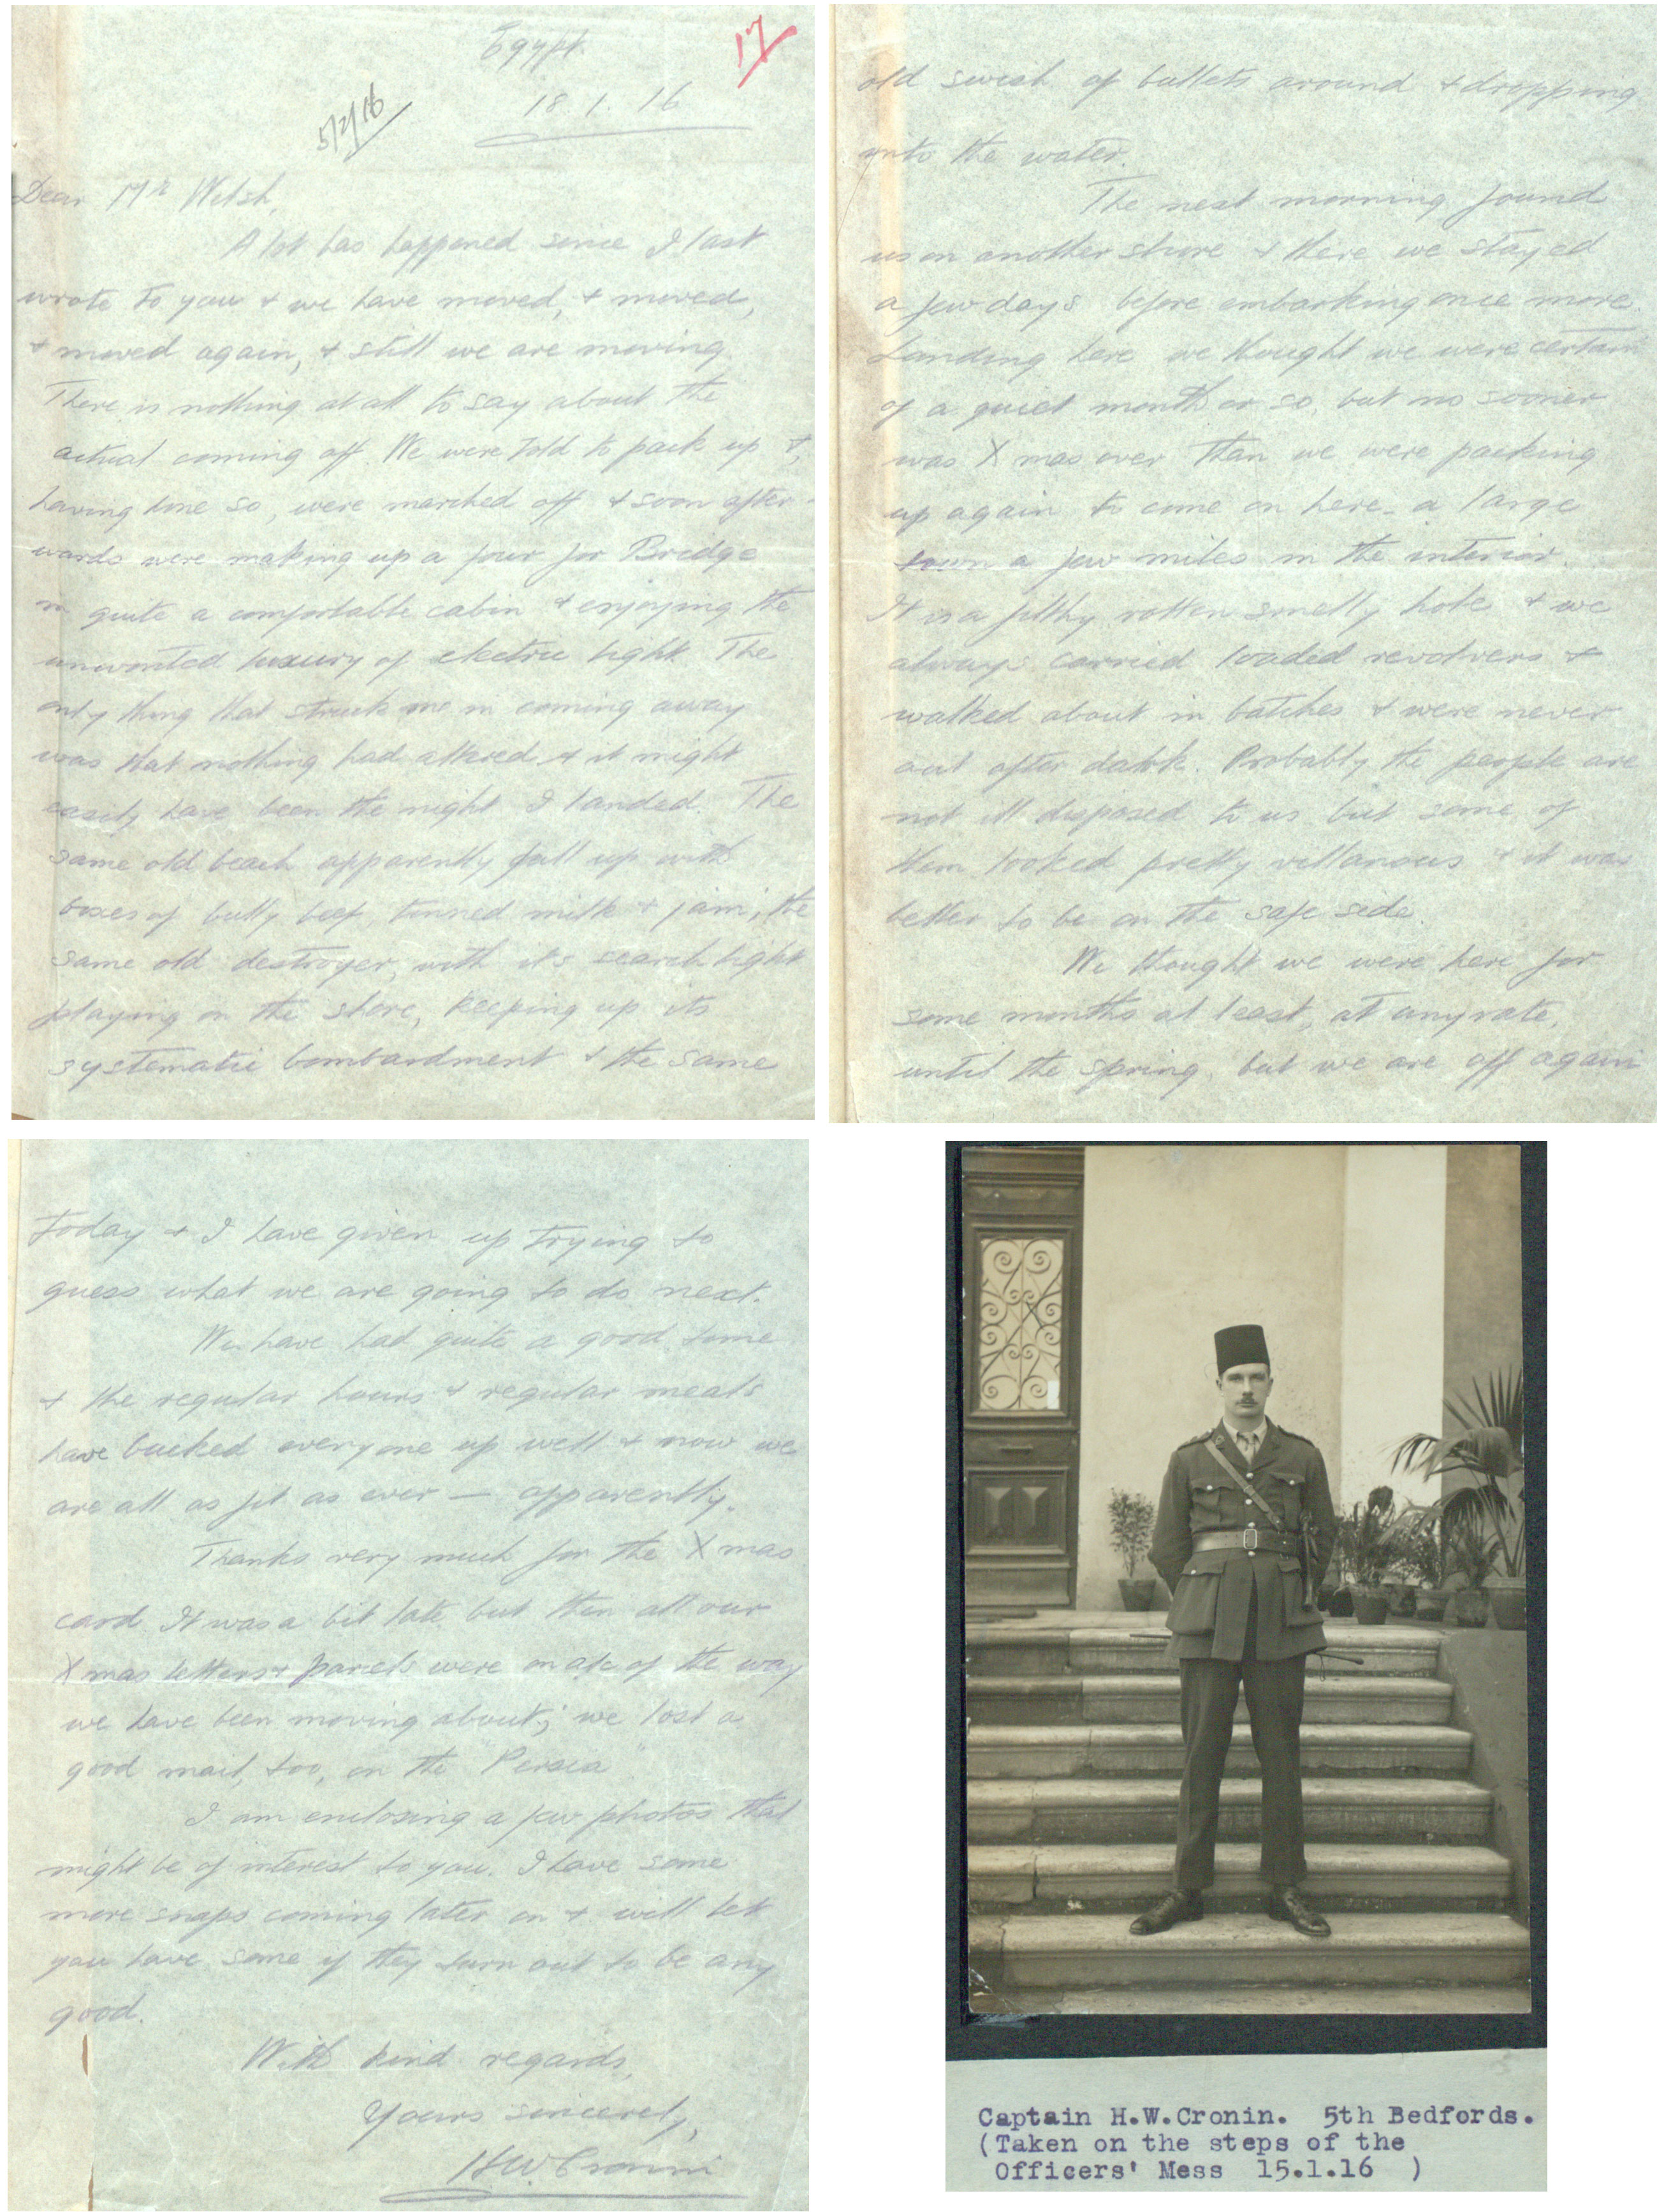 Egypt.
17
18.1.16
5/2/16
Dear Mr Welsh,
A lot has happened since I last
wrote to you & we have moved, & moved,
& moved again, & still we are moving.
There is nothing at all to say about the
actual coming off. We were told to pack up &,
having done so, were marched off & soon after-
wards were making up a four for Bridge
in quite a comfortable cabin & enjoying the
unwonted luxury of electric light. The
only thing that struck me in coming away
was that nothing had altered & it might
easily have been the night I landed. The
same old beach apparently full up with
boxes of bully beef, tinned milk & jam; the
same old destroyer, with it's searchlight
playing on the shore, keeping up its
systematic bombardment & the same
old swish of bullets around & dropping
into the water.
The next morning found
us on another shore & there we stayed
a few days before embarking once more.
Landing here we thought we were certain
of a quiet month or so, but no sooner
was Xmas over than we were packing
up again to come on here - a large
town a few miles in the interior.
It is a filthy rotten smelly hole & we
always carried loaded revolvers &
walked about in batches & were never
out after dark. Probably the people are
not ill disposed to us but some of
them looked pretty villanous & it was
better to be on the safe side.
We thought we were here for
some months at least, at anyrate,
until the spring, but we are off again
today & I have given up trying to
guess what we are going to do next.
We have had quite a good time
& the regular hours & regular meals
have bucked everyone up well & now we
are all as fit as ever — apparently.
Thanks very much for the Xmas
card. It was a bit late but then all our
Xmas letters & parcels were on a/c of the way
we have been moving about; we lost a
good mail, too, on the "Persia".
I am enclosing a few photos that
might be of interest to you. I have some
more snaps coming later on & will let
you have some if they turn out to be any
good.
With kind regards,
Yours sincerely,
H.W. Cronin
Captain H.W.Cronin. 5th Bedfords.
(Taken on the steps of the
Officers' Mess 15.1.16 )